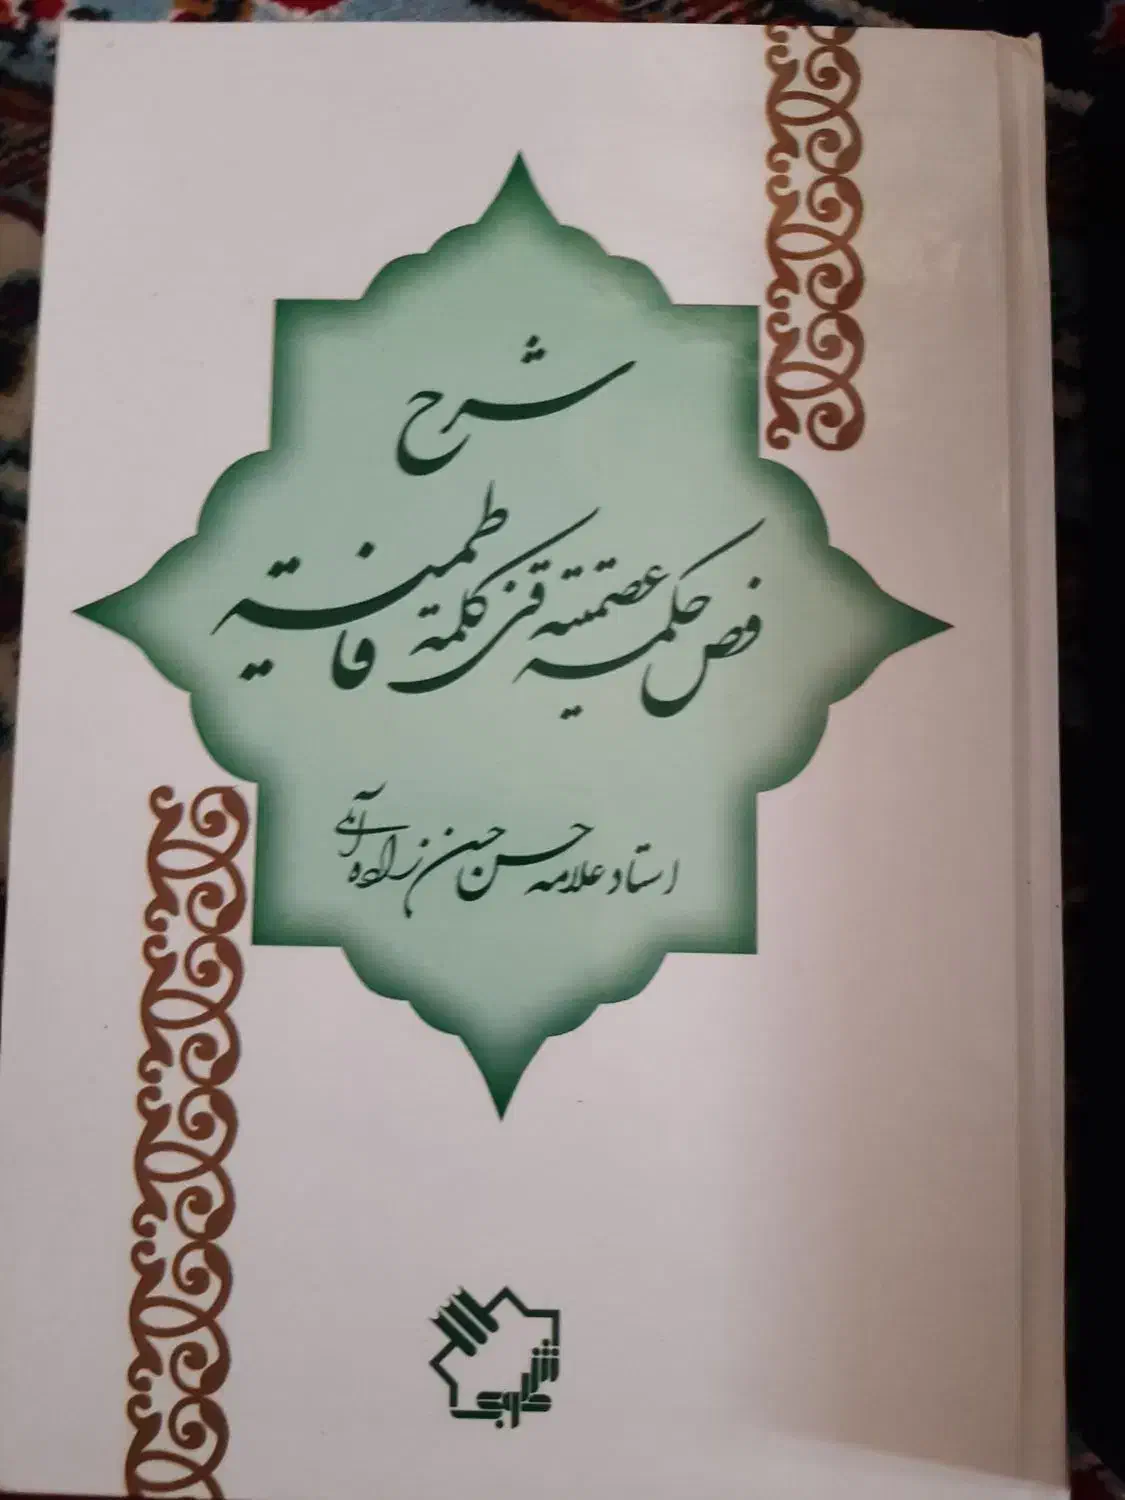 شرح
فص حکمة عصمتیة فی کلمة فاطمیة
استاد علامه حسن حسن زاده آملی
نشر طوبی